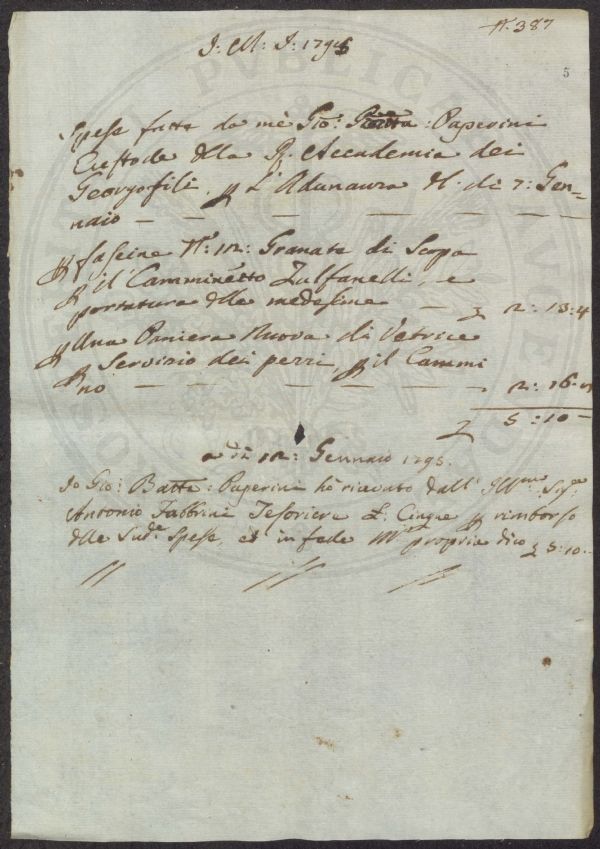 N. 387
J: M: J: 1795
5
Spese fatte da me Gio: Batta: Paperini
Custode della R. Accademia dei
Georgofili, p L'Adunanza d. di 7: Gen=
naio
p fascine N. 12: Granate di Scopa
p il Camminetto Zulfanelli, e
portatura delle medesime £ 2: 13: 4
p Una Paniera Nuova di Vetrice
p Servizio dei pezzi p il Cammi
no 2: 16.
£ 5: 10
a dì 12: Gennaio 1795.
Io Gio: Batta: Paperini hò ricevuto dall' Ill.mo Sig.e
Antonio Fabbrini Tesoriere L: Cinque p rimborso
delle Sud.e Spese, et in fede M.o propria dico £ 5: 10